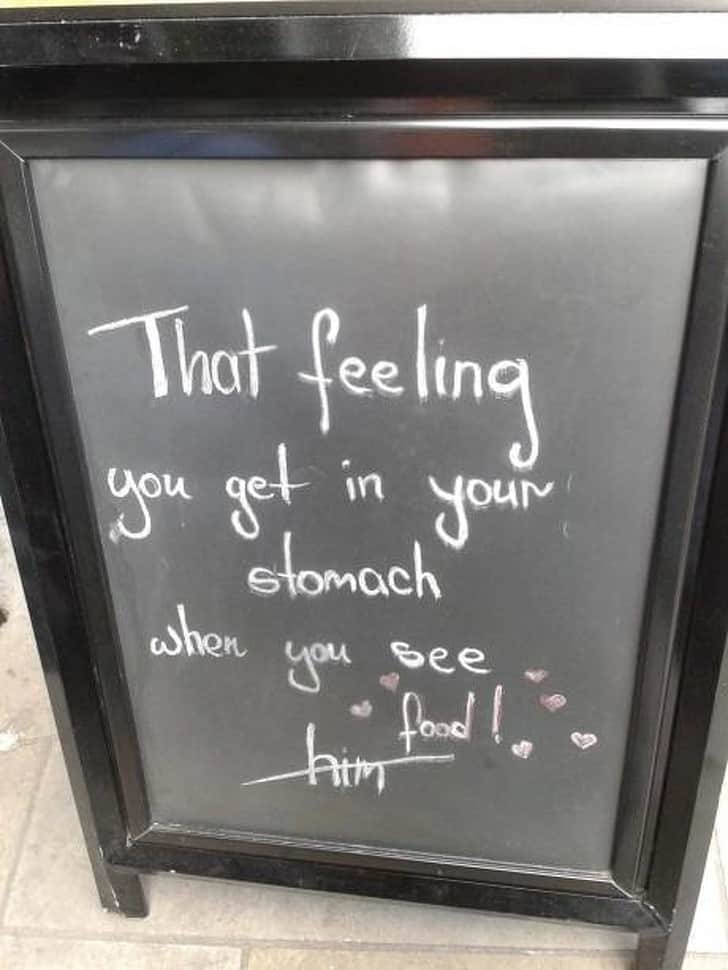 That feeling
you get in your
stomach
when you see
food!
him